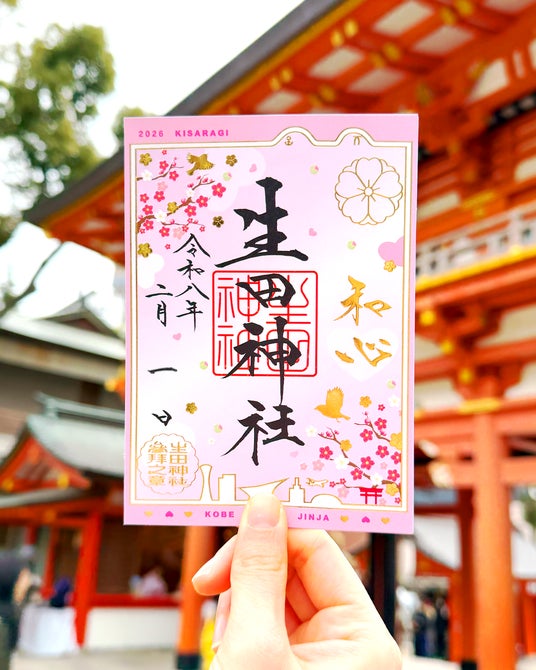 2026 KISARAGI
生田神社
和心
令和八年
二月一日
生田神社
参拝之章
生田神社
KOBE JINJA